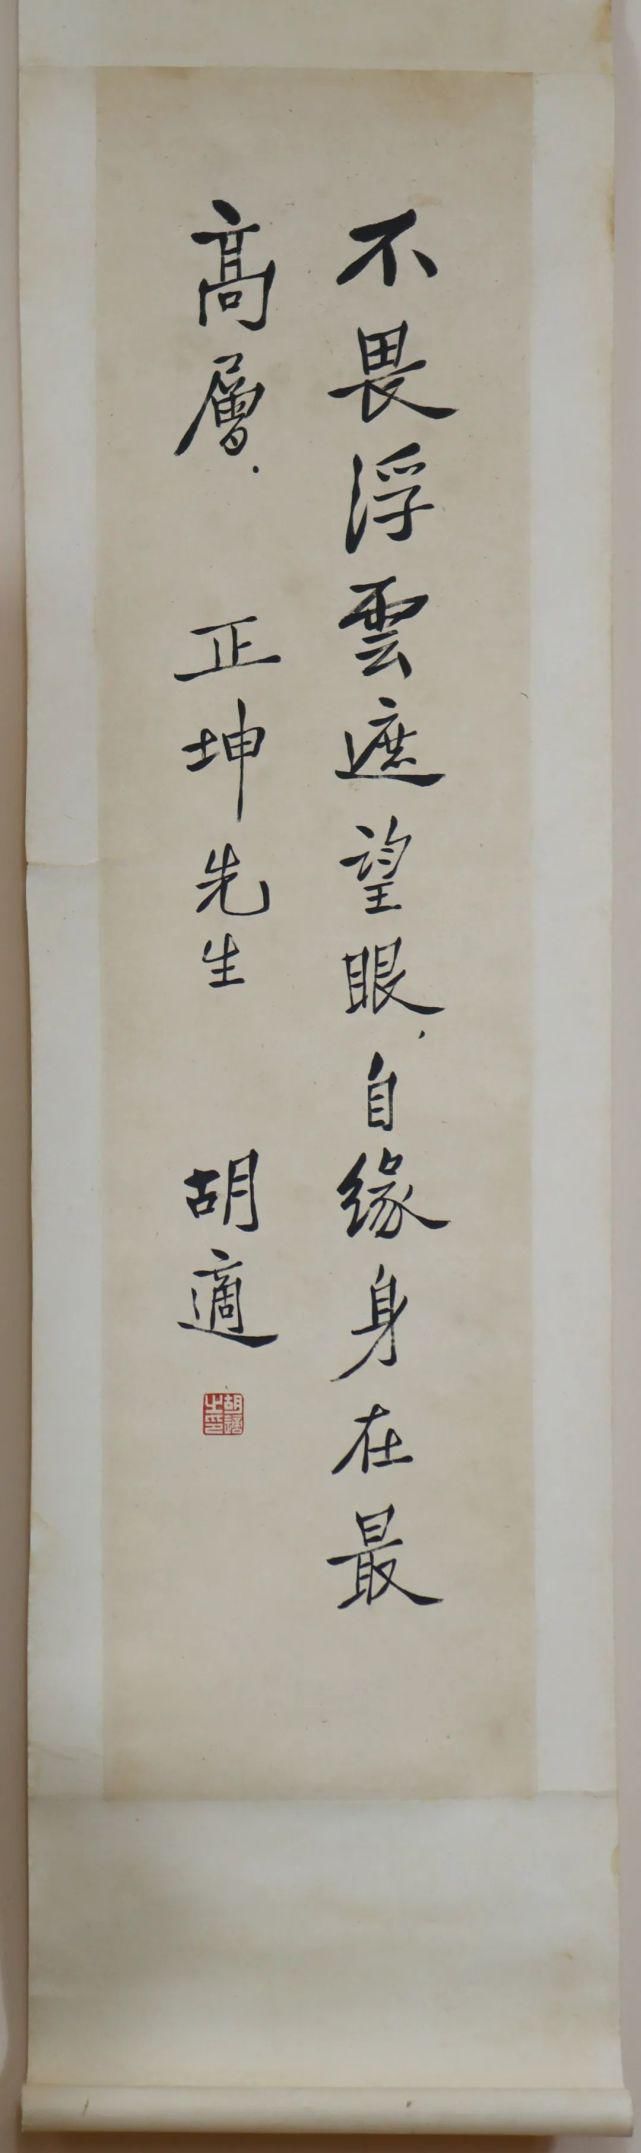 不畏浮雲遮望眼，自缘身在最
高層．正坤先生 胡適
胡適之印